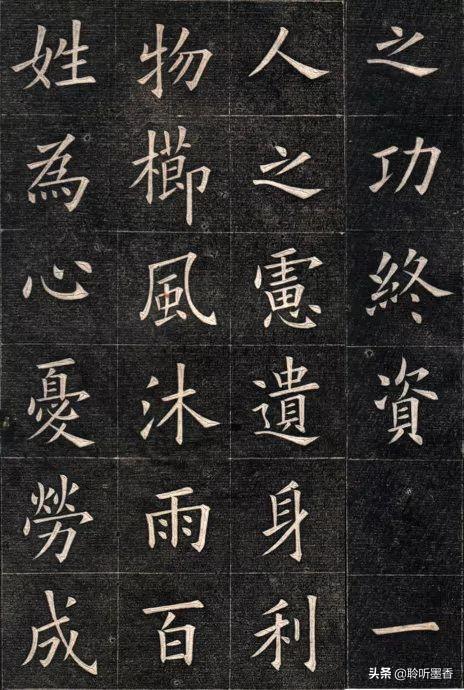 之功終資 一
人之慮遺身利
物櫛風沐雨百
姓為心憂勞成
头条 @聆听墨香